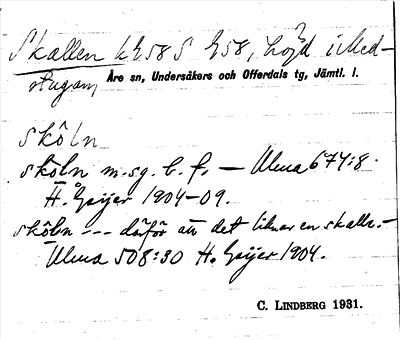 Skallen kk58 S g58, höjd i Med-
stugan, Åre sn, Undersåkers och Offerdals tg, Jämtl. l.
sköln
sköln m. sg. b. f. — Ulma 674:8.
H. Geijer 1904–09.
sköln --- därför att det liknar en skalle. –
Ulma 508:30 H. Geijer 1904.
C. LINDBERG 1931.